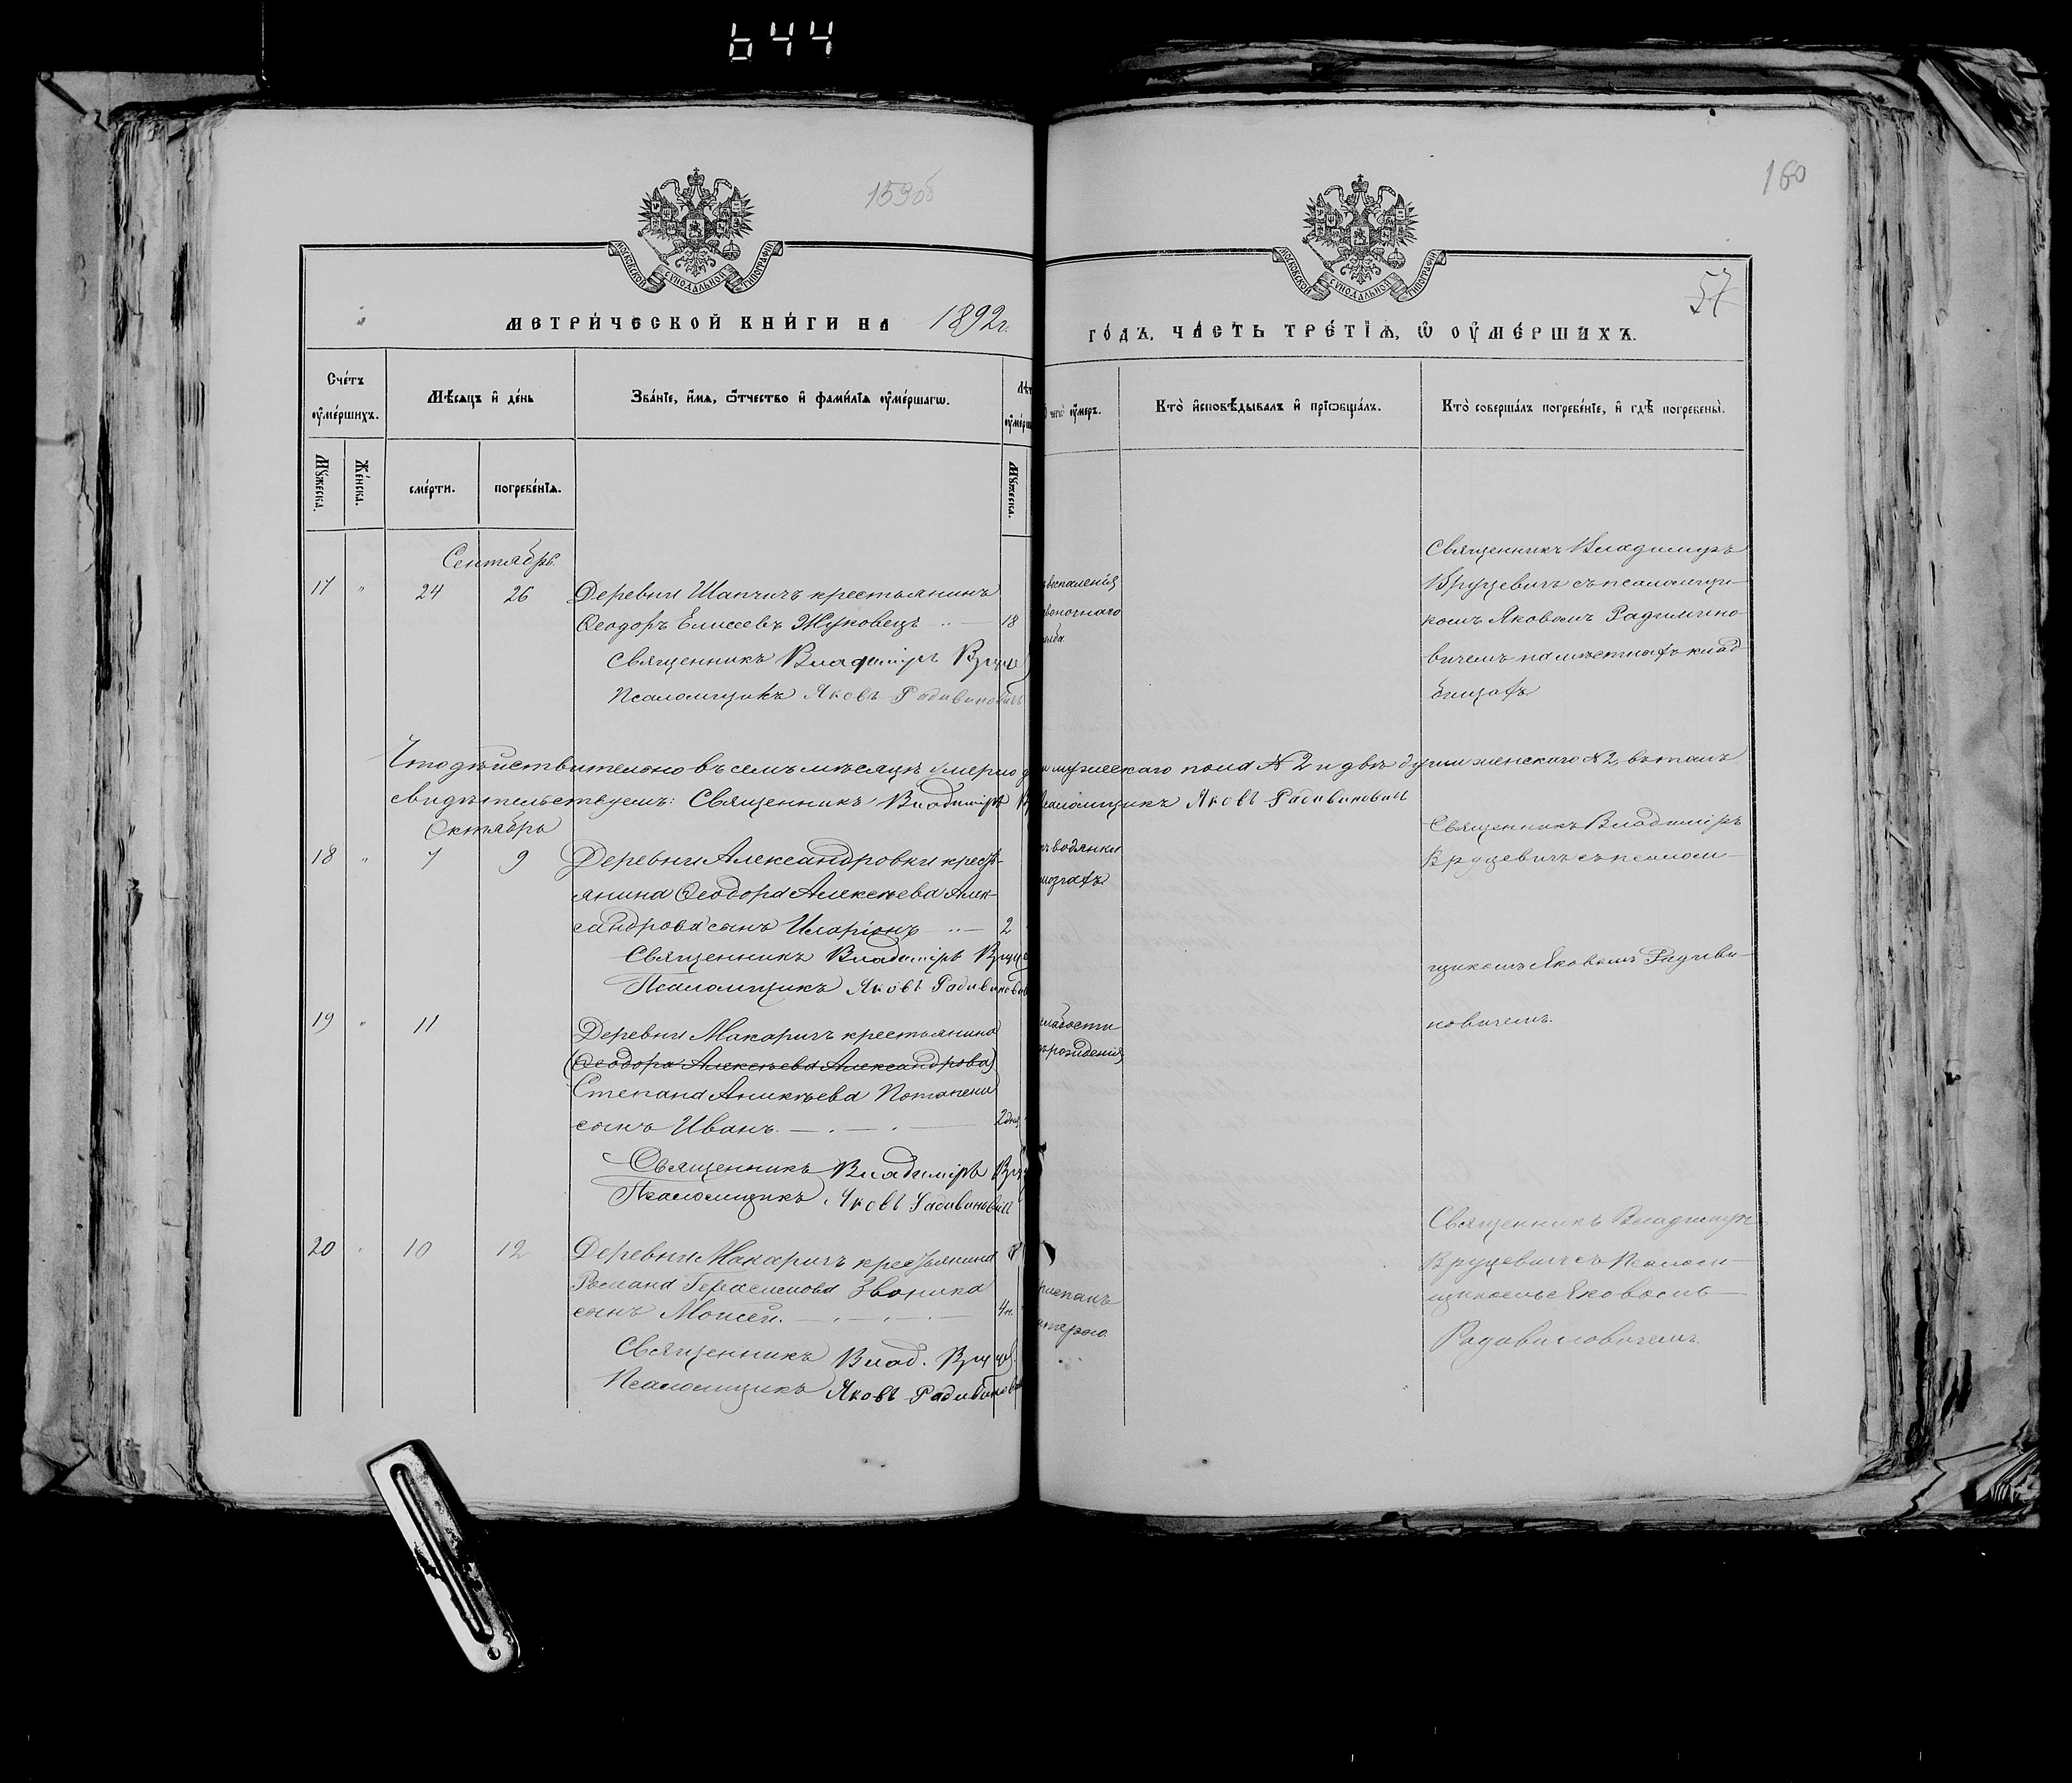 644
159об
160
57
МОСКОВСКОЙ СѴНОДАЛЬНОЙ ТИПОГРАФІИ
МОСКОВСКОЙ СѴНОДАЛЬНОЙ ТИПОГРАФІИ
МЕТРИ́ЧЕСКОЙ КНИ́ГИ НА 1892г.
ГО́ДЪ, ЧА́СТЬ ТРЕ́ТІѦ, Ѡ҆ ОУ҆МЕ́РШИХЪ.
Сче́тъ оу҆ме́ршихъ.
Мѣ́сѧцъ и҆ де́нь
Зва́нїе, и҆́мѧ, ѻ҆́тчество и҆ фами́лїѧ оу҆ме́ршагѡ.
Лѣт
оу҆ме́рш
чегѡ̀ оу҆́меръ.
Кто̀ и҆сповѣ́дывалъ и҆ прїѡбща́лъ.
Кто̀ соверша́лъ погребе́нїе, и҆ гдѣ̀ погребены̀.
Мꙋ́жеска.
Же́нска.
сме́рти.
погребе́нїѧ.
Мꙋ́жеска.
Сентябрь.
17 " 24 26 Деревни Шапчичъ крестьянинъ
Ѳеодоръ Елисеевъ Жуковецъ " — 18
Священникъ Владиміръ Вруце
Псаломщикъ Яковъ Радивиновичъ
воспаленія
воночнаго
Священникъ Владиміръ
Вруцевичъ съ псаломщи-
комъ Яковомъ Радивино-
вичемъ на мѣстномъ клад-
бищѣ
Что дѣйствительно въ семъ мѣсяцѣ умерло мужескаго пола № 2 и двѣ души женскаго № 2, въ томъ
свидѣтельствуемъ: Священникъ Владиміръ В Псаломщикъ Яковъ Радивиновичъ
Октябрь
18 " 7 9 Деревни Александровки кресть-
янина Ѳеодора Алексѣева Алек-
сандрова сынъ Иларіонъ " — 2
Священникъ Владиміръ Вруце
Псаломщикъ Яковъ Радивинов
водянки
мозгахъ
Священникъ Владиміръ
Вруцевичъ съ псалом-
щикомъ Яковомъ Радиви-
новичемъ.
19 " 11 Деревни Макаричъ крестьянина
(Ѳеодора Алексѣева Александрова)
Степана Аникѣева Потапенко
сынъ Иванъ. — 2 дня
Священникъ Владиміръ Вру
Псаломщикъ Яковъ Радивиновичъ
слабости
рожденія
20 " 10 12 Деревни Макаричъ крестьянина
Романа Герасимова Звоника
сынъ Моисей. — 4 н.
Священникъ Влад. Вруце
Псаломщикъ Яковъ Радивинов
матерью.
Священникъ Владиміръ
Вруцевичъ съ Псалом-
щикомъ Яковомъ
Радивиновичемъ.